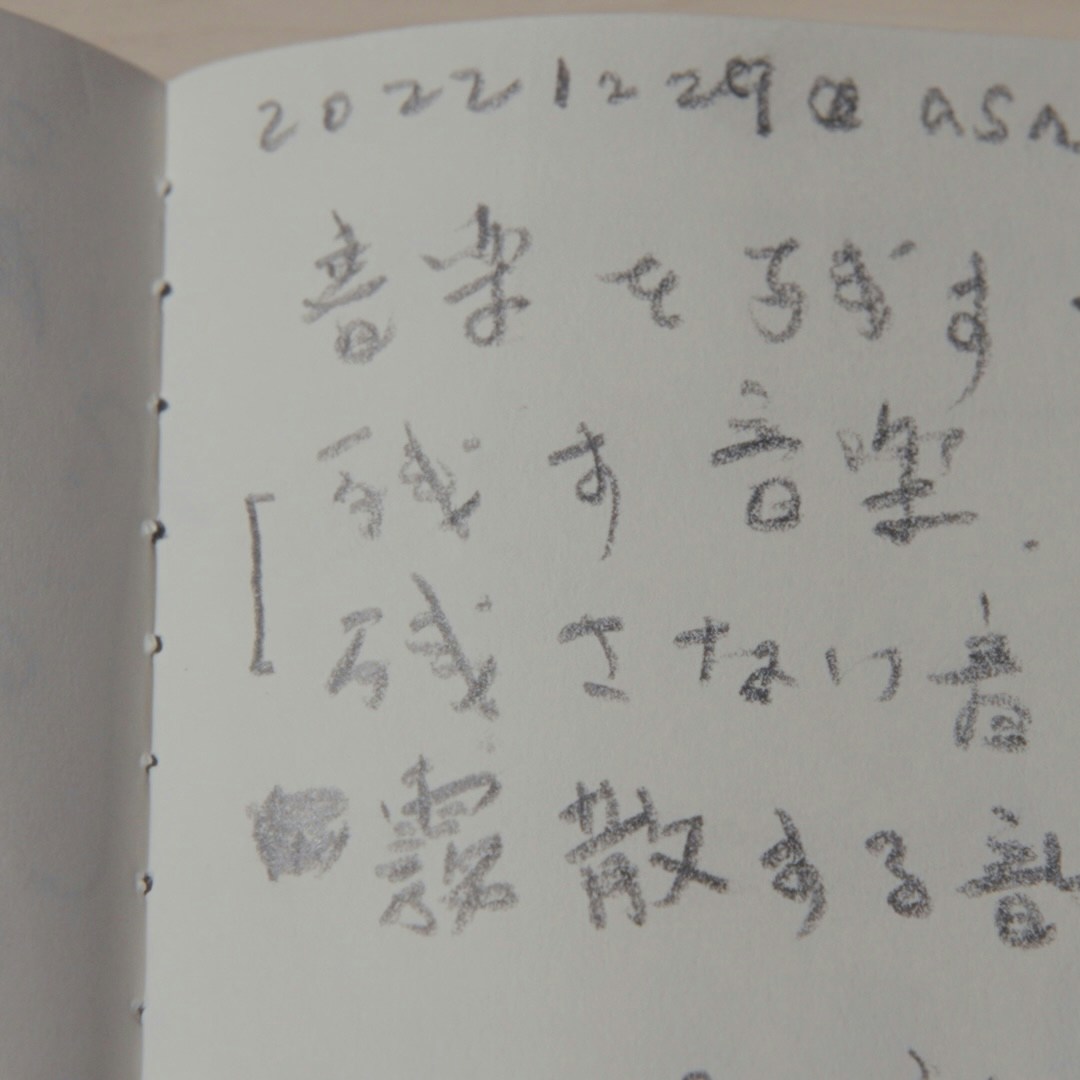 20221229@ asn
音楽を
残す音楽.
残さない音
霧散する音